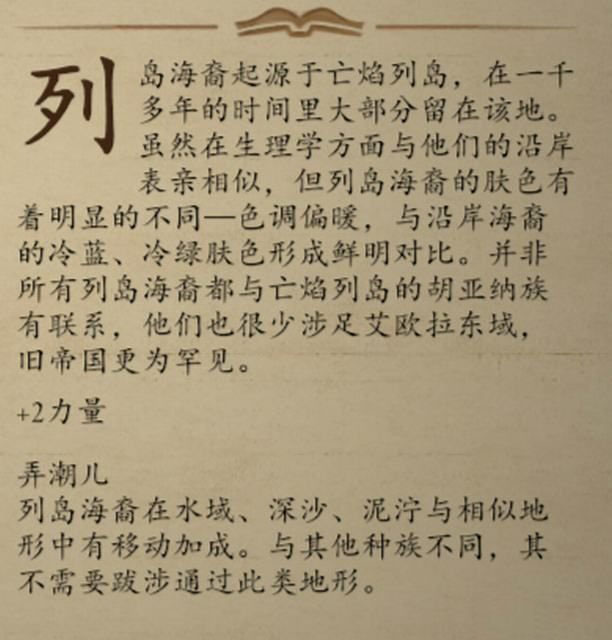 列岛海裔起源于亡焰列岛，在一千
多年的时间里大部分留在该地。
虽然在生理学方面与他们的沿岸
表亲相似，但列岛海裔的肤色有
着明显的不同—色调偏暖，与沿岸海裔
的冷蓝、冷绿肤色形成鲜明对比。并非
所有列岛海裔都与亡焰列岛的胡亚纳族
有联系，他们也很少涉足艾欧拉东域，
旧帝国更为罕见。
+2力量
弄潮儿
列岛海裔在水域、深沙、泥泞与相似地
形中有移动加成。与其他种族不同，其
不需要跋涉通过此类地形。